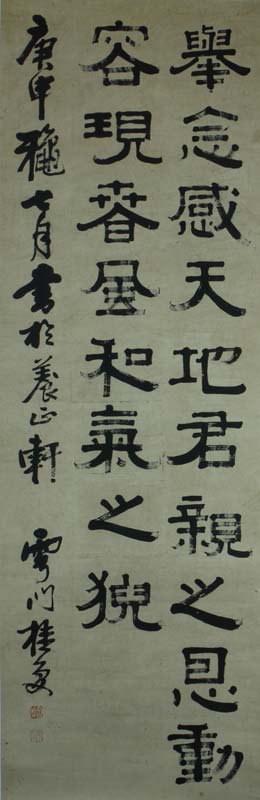 舉念感天地君親之恩動
容現春風和氣之猊
庚申龝七月書於養正軒 雩門桂㕝